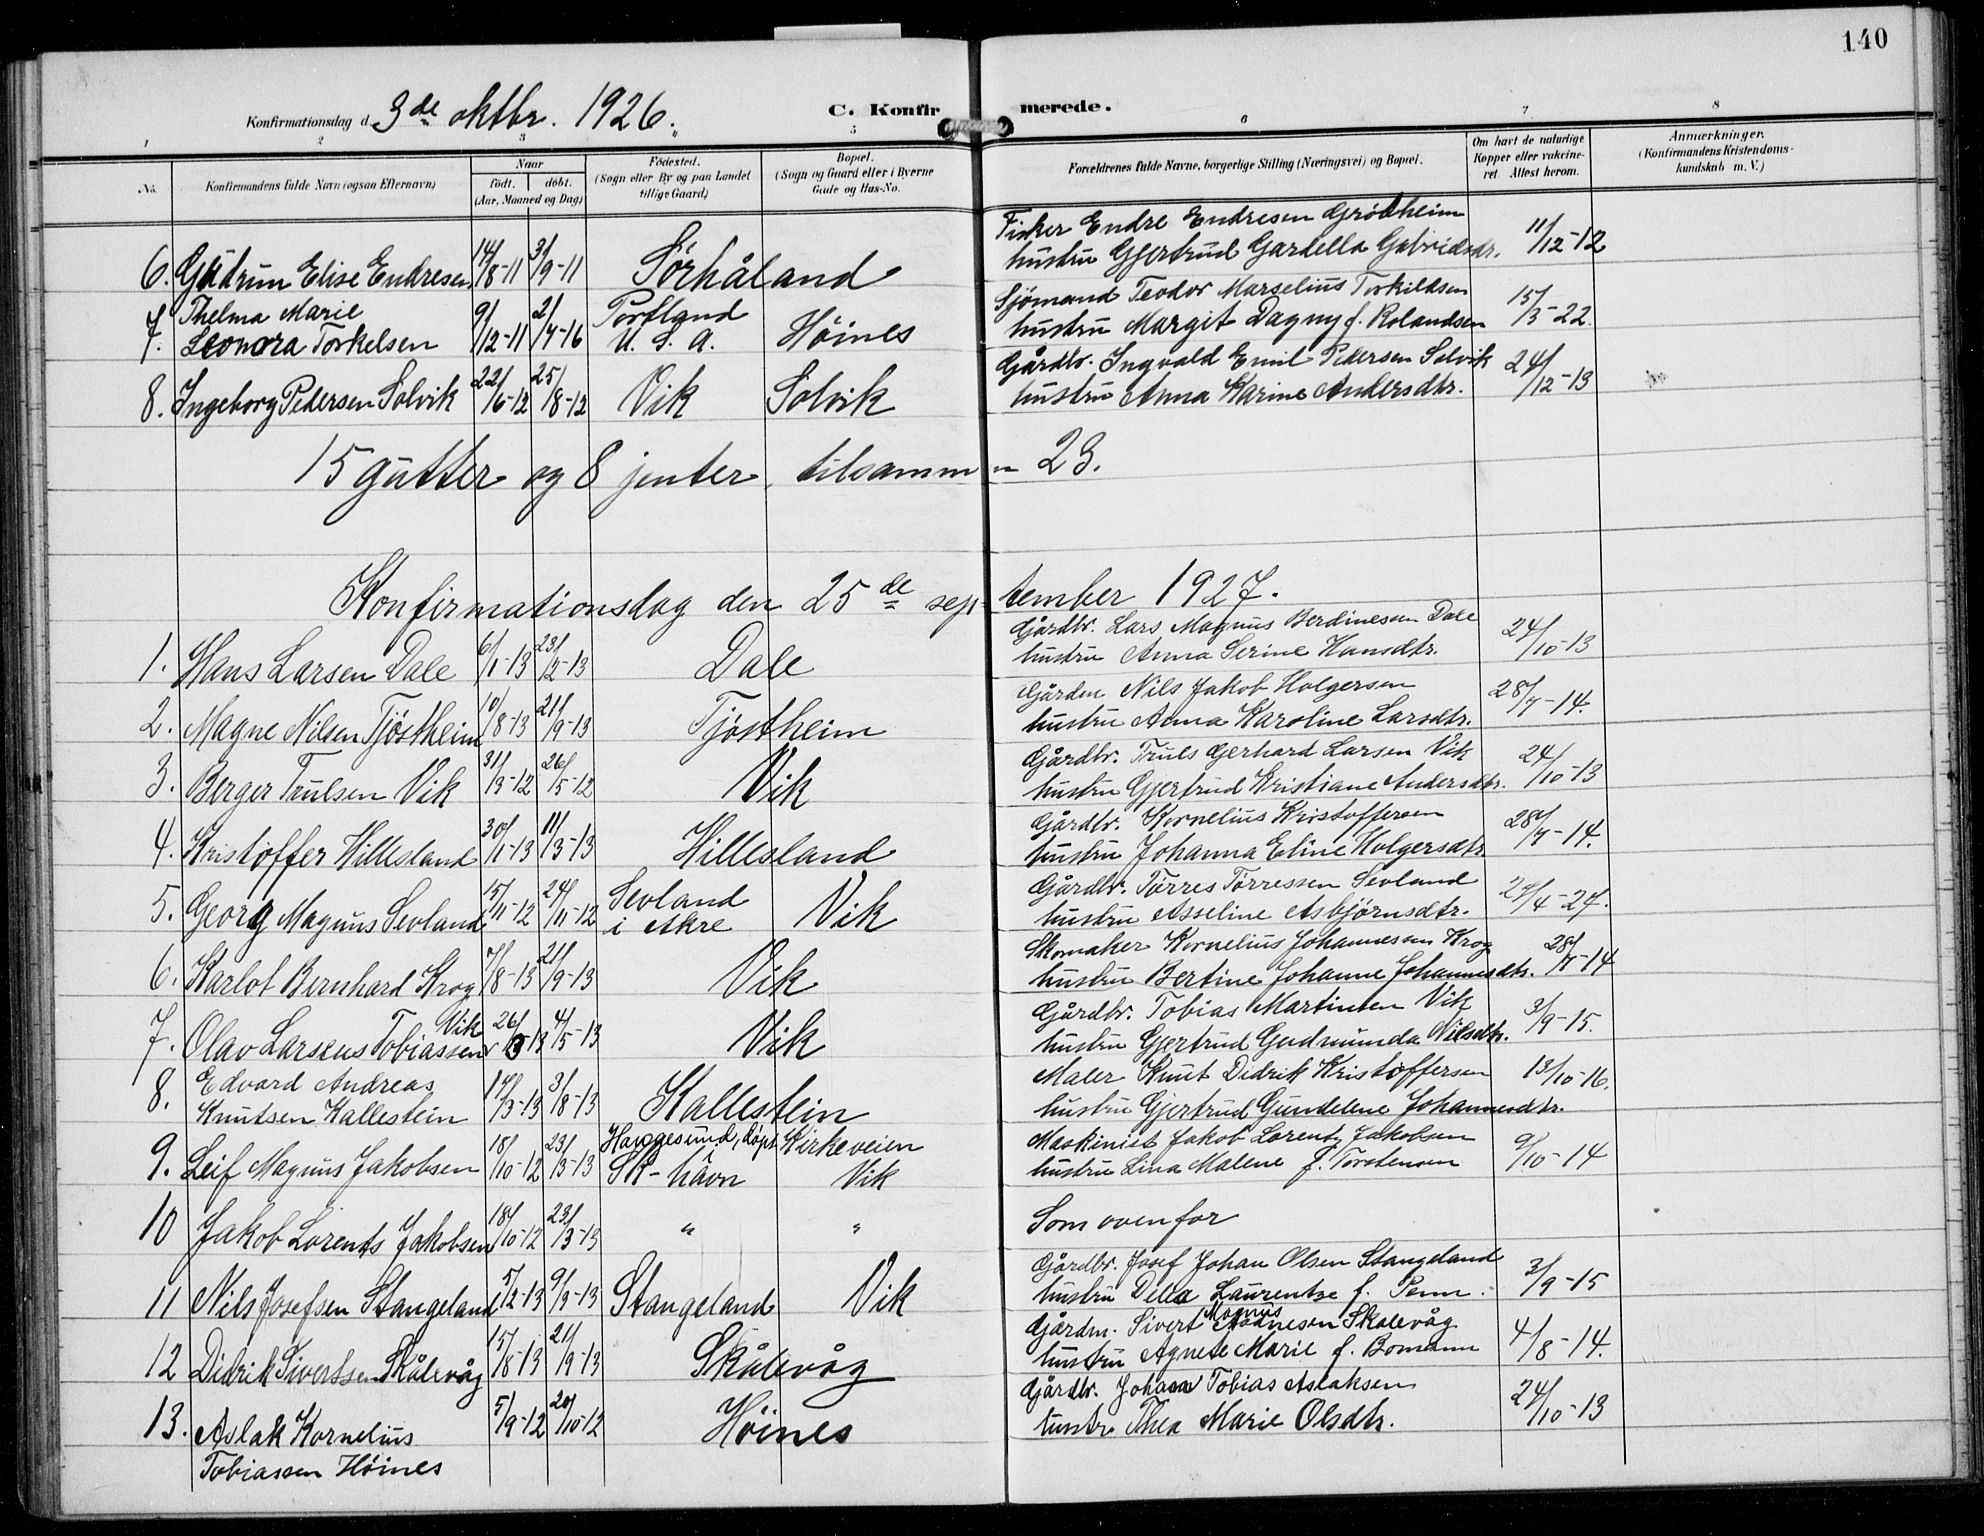 140
Konfirmationsdag d. 3de oktbr. 1926.
C. Konfirmerede.
1 2 3 5 6 7 8
No.
Konfirmandens fulde Navn (ogsaa Efternavn)
Naar
født. døbt.
(Aar, Maaned og Dag)
Fødested.
(Sogn eller By og paa Landet
tillige Gaard)
Bopæl.
(Sogn og Gaard eller i Byerne
Gade og Hus-No.
Forældrenes fulde Navne, borgerlige Stilling (Næringsvei) og Bopæl.
Om havt de naturlige
Kopper eller vakcine-
ret. Attest herom.
Anmærkninger.
(Konfirmandens Kristendoms-
kundskab m. V.)
Fisker Endre Endresen Grödheim
6. Gudrun Elise Endresen 14/8-11 3/9-11 Sörhåland hustru Gjertrud Gardella Gabrielsdtr. 11/12-12
7. Thelma Marie 9/12-11 2/7-16 Portland Sjömand Teodor Marselius Torkildsen 15/3-22.
Leonora Torkelsen U. S. A. Höines hustru Margit Dagny f. Rolandsen
Gårdbr. Ingvald Emil Pedersen Solvik
8. Ingeborg Pedersen Solvik 22/6-12 25/8-12 Vik Solvik hustru Anna Karine Andersdtr. 24/12-13
15 gutter og 8 jenter, tilsammen 23.
Konfirmationsdag den 25de september 1927.
Gårdbr. Lars Magnus Berdinesen Dale
1. Hans Larsen Dale 6/1-13 23/2-13 Dale hustru Anna Serine Hansdtr. 24/10-13
Gårdm Nils Jakob Holgersen
2. Magne Nilsen Tjöstheim 10/8-13 21/9-13 Tjöstheim hustru Anna Karoline Larsdtr. 28/7-14.
Gårdbr. Truls Gerhard Larsen Vik
3. Berger Trulsen Vik 31/3-12 26/5-12 Vik hustru Gjertrud Kristiane Andersdtr. 24/10-13
Gårdbr. Kornelius Kristoffersen
4. Kristoffer Hillesland 30/1-13 11/3-13 Hillesland hustru Johanna Eline Holgersdtr. 28/7-14.
Gårdbr. Törres Törressen Sevland
5. Georg Magnus Sevland 15/11-12 24/11-12 Sevland i Akre Vik hustru Asseline Asbjörnsdtr. /4-27.
Skomaker Kornelius Johannesen Krog
6. Karlot Bernhard Krog 7/8-13 21/9-13 Vik hustru Bertine Johanne Johannesdtr. 28/7-14
Gårdbr. Tobias Martinsen Vik
7. Olav Larsens Tobiassen Vik 26/3-13 4/5-13 Vik hustru Gjertrud Gudmunda Nilsdtr. 3/9-15.
8. Edvard Andreas /3-13 3/8-13 Maler Knut Didrik Kristoffersen 13/10-16.
Knutsen Kallestein Kallestein hustru Gjertrud Gundelene Johannesdtr.
Haugesund, döpt i Kirkeveien Maskinist Jakob Lorentz Jakobsen
9. Leif Magnus Jakobsen 18/10-12 23/3-13 Sk-havn Vik hustru Lina Malene f. Torstensen 9/10-14
10 Jakob Lorents Jakobsen 18/10-12 23/3-13 " " Som ovenfor
Gårdbr. Josef Johan Olsen Stangeland
11 Nils Josefsen Stangeland 5/2-13 9/3-13 Stangeland Vik hustru Della Laurentze f. Penn. 3/9-15
Gårdm. Sivert Magnus Skålevåg
12 Didrik Sivertsen Skålevåg 15/8-13 21/9-13 Skålevåg hustru Agnete Marie f. Bomann 4/8-14.
Gårdbr. Johan Tobias Aslaksen
13. Aslak Kornelius 5/9-12 20/10-12 Höines hustr. Thea Marie Olsdtr. 24/10-13
Tobiassen Höines